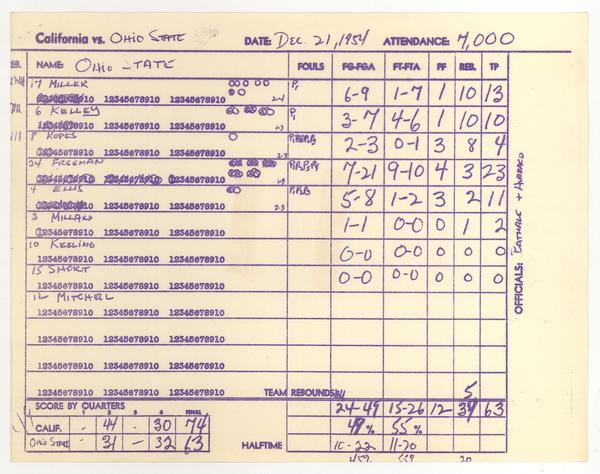 California vs. OHIO STATE DATE: DEC. 21, 1954 ATTENDANCE: 7,000
NAME: OHIO STATE FOULS FG-FGA FT-FTA PF REB. TP
17 MILLER P1 6-9 1-7 1 10 13
10 12345678910 12345678910 2-4
6 KELLEY P1 3-7 4-6 1 10 10
10 12345678910 12345678910 1-3
8 ROPES 2-3 0-1 3 8 4
2345678910 12345678910 12345678910 2-3
24 FREEMAN 7-21 9-10 4 3 23
4 ELLIS 5-8 1-2 3 2 11
10 12345678910 12345678910 2-3
3 MILLARD 1-1 0-0 0 1 2
2345678910 12345678910 12345678910
10 KEELING 0-0 0-0 0 0 0
12345678910 12345678910 12345678910
15 SHORT 0-0 0-0 0 0 0
12345678910 12345678910 12345678910
12 MITCHELL
12345678910 12345678910 12345678910
12345678910 12345678910 12345678910
12345678910 12345678910 12345678910
12345678910 12345678910 12345678910 TEAM REBOUNDS 5
SCORE BY QUARTERS 24-49 15-26 12 39 63
1 2 3 4 FINAL
CALIF. - 44 - 30 74 49% 55%
OHIO STATE - 31 - 32 63 HALFTIME 10-22 11-20
45% 20
OFFICIALS: